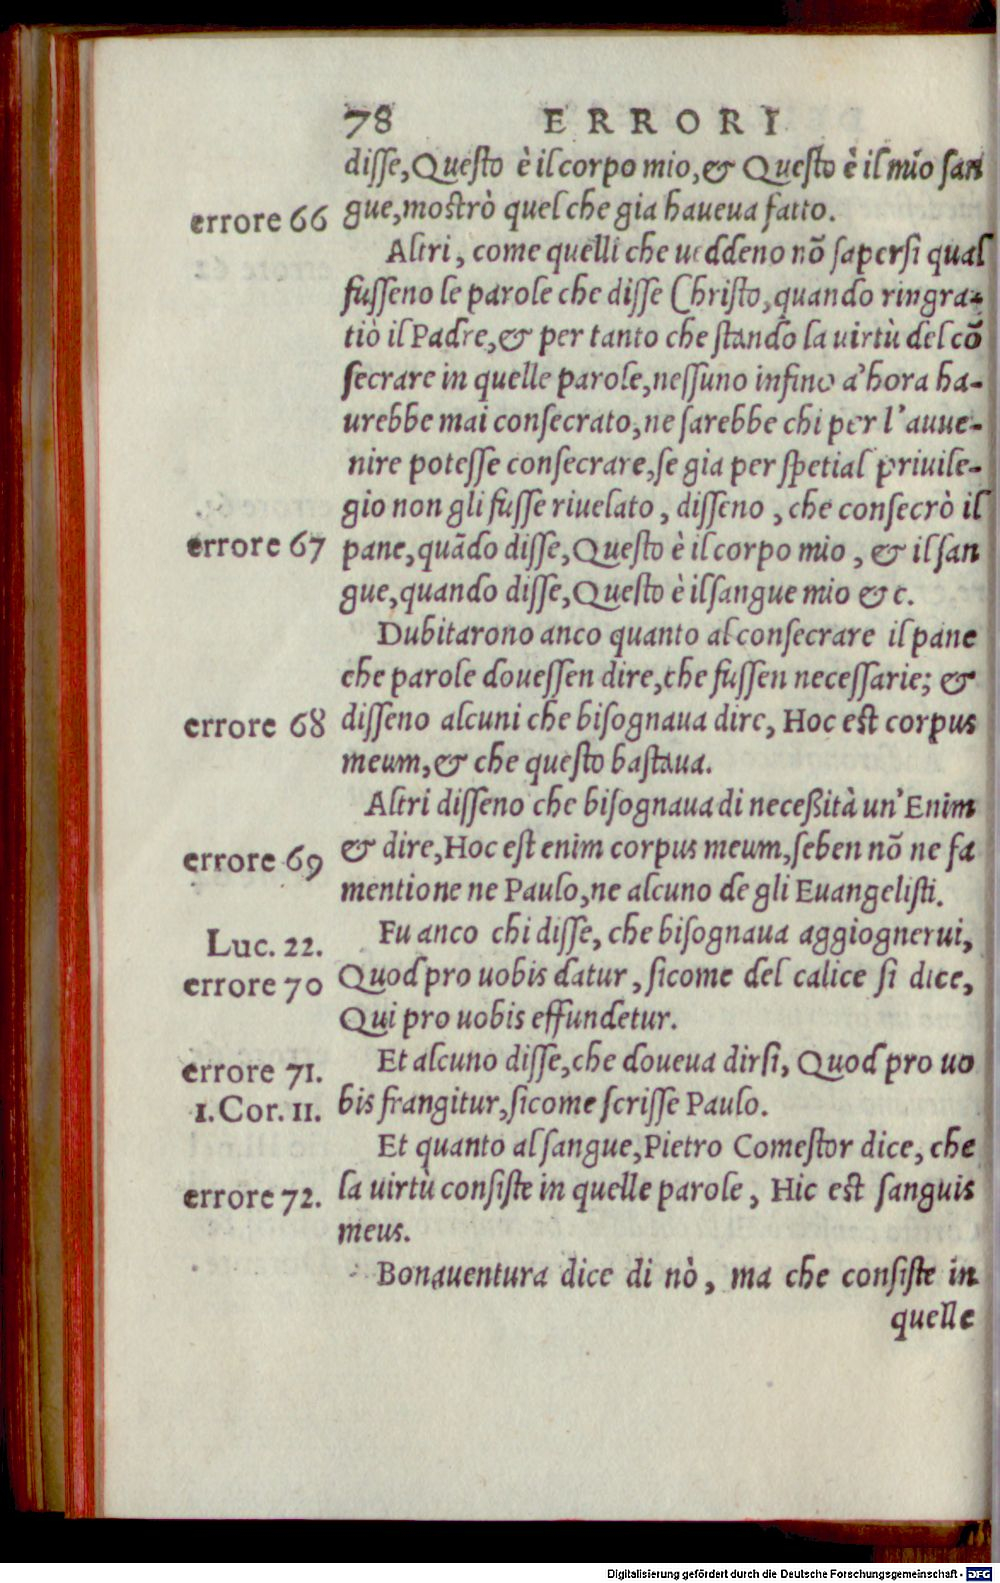 78 ERRORI
disse, Questo è il corpo mio, & Questo è il mio san
errore 66 gue, mostrò quel che gia haueua fatto.
Altri, come quelli che ueddeno nō sapersi qual
fusseno le parole che disse Christo, quando ringra-
tiò il Padre, & per tanto che stando la uirtù del cō
secrare in quelle parole, nessuno infino a'hora ha-
urebbe mai consecrato, ne sarebbe chi per l'auue-
nire potesse consecrare, se gia per spetial priuile-
gio non gli fusse riuelato, disseno, che consecrò il
errore 67 pane, quādo disse, Questo è il corpo mio, & il san
gue, quando disse, Questo è il sangue mio &c.
Dubitarono anco quanto al consecrare il pane
che parole douessen dire, che fussen necessarie; &
errore 68 disseno alcuni che bisognaua dire, Hoc est corpus
meum, & che questo bastaua.
Altri disseno che bisognaua di necessità un'Enim
errore 69 & dire, Hoc est enim corpus meum, seben nō ne fa
mentione ne Paulo, ne alcuno de gli Euangelisti.
Luc. 22. Fu anco chi disse, che bisognaua aggiognerui,
errore 70 Quod pro uobis datur, sicome del calice si dice,
Qui pro uobis effundetur.
errore 71. Et alcuno disse, che doueua dirsi, Quod pro uo
1. Cor. 11. bis frangitur, sicome scrisse Paulo.
Et quanto al sangue, Pietro Comestor dice, che
errore 72. la uirtù consiste in quelle parole, Hic est sanguis
meus.
Bonauentura dice di nò, ma che consiste in
quelle
Digitalisierung gefördert durch die Deutsche Forschungsgemeinschaft - DFG